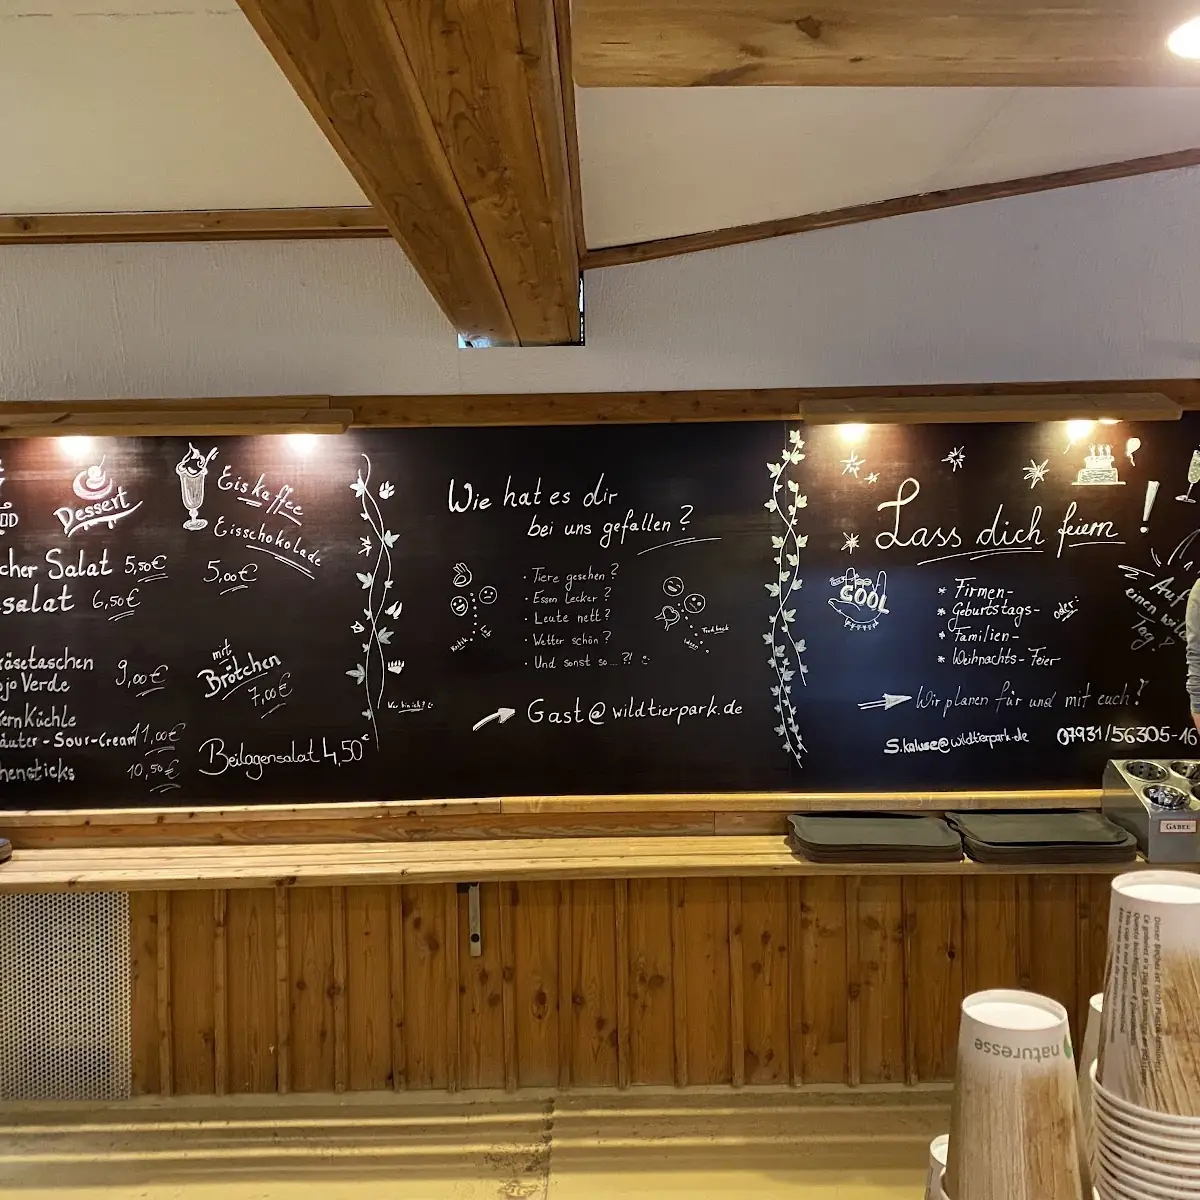 Dessert
Eiskaffee
Eisschokolade
5,00€
cher Salat 5,50€
salat 6,50€
käsetaschen
ojo Verde 9,00€
mit
Brötchen
7,00€
ernKüchle
äuter-Sour-Cream 11,00€
hensticks 10,50€
Beilagensalat 4,50€
Wer bin ich?
Wie hat es dir
bei uns gefallen?
· Tiere gesehen?
· Essen lecker?
· Leute nett?
· Wetter schön?
· Und sonst so...?!
Kritik
Lob
Feedback
Gast@wildtierpark.de
Lass dich feiern!
COOL
* Firmen-
* Geburtstags-
* Familien-
* Weihnachts-Feier
oder:
Auf
einen
Tag?
Wir planen für und mit euch!
S.kaluse@wildtierpark.de
07931/56305-16
GABEL
naturesse
Dieser Becher ist nicht Plastik